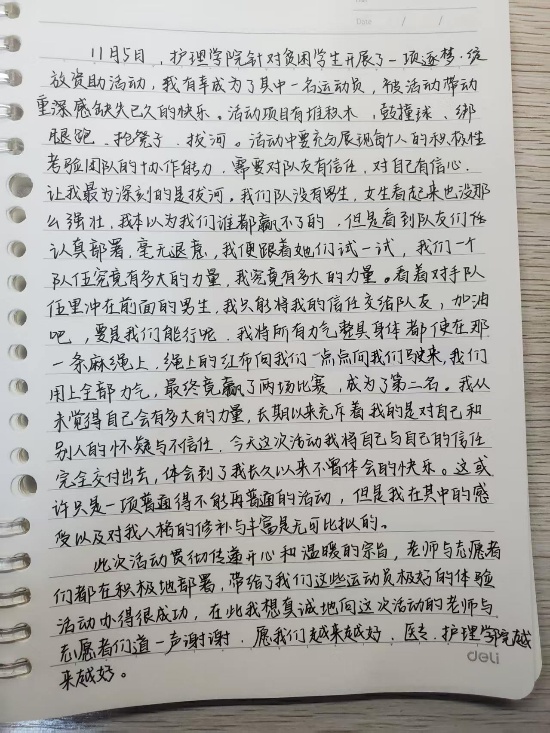 Date / /
11月5日，护理学院针对贫困学生开展了一项逐梦·绽
放资助活动，我有幸成为了其中一名运动员，被活动带动
重深感缺失已久的快乐。活动项目有堆积木、鼓撞球、绑
腿跑、抢凳子、拔河。活动中要充分展现每个人的积极性
考验团队的协作能力，需要对队友有信任，对自己有信心。
让我最为深刻的是拔河。我们队没有男生，女生看起来也没那
么强壮，我本以为我们谁都赢不了的，但是看到队友们在
认真部署，毫无退意，我便跟着她们试一试，我们一个
队伍究竟有多大的力量，我究竟有多大的力量。看着对手队
伍里冲在前面的男生，我只能将我的信任交给队友，加油
吧，要是我们能行呢，我将所有力气整具身体都使在那
一条麻绳上，绳上的红布向我们一点点向我们驶来，我们
用上全部力气，最终竟赢了两场比赛，成为了第二名。我从
未觉得自己会有多大的力量，长期以来充斥着我的是对自己和
别人的怀疑与不信任，今天这次活动我将自己与自己的信任
完全交付出去，体会到了我长久以来不曾体会的快乐。这或
许只是一项普通得不能再普通的活动，但是我在其中的感
受以及对我人格的修补与丰富是无可比拟的。
此次活动贯彻传递开心和温暖的宗旨，老师与志愿者
们都在积极地部署，带给了我们这些运动员极好的体验
活动办得很成功，在此我想真诚地向这次活动的老师与
志愿者们道一声谢谢，愿我们越来越好，医专、护理学院越
来越好。
deli